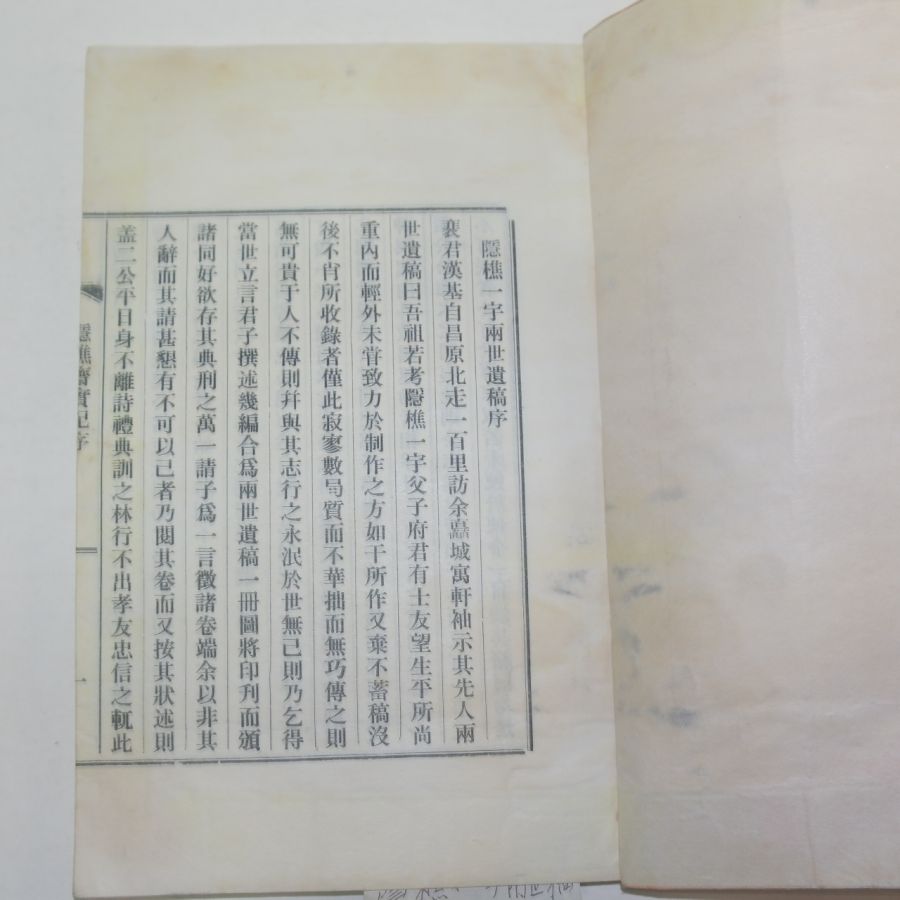 隱樵一宇兩世遺稿序
裵君漢基自昌原北走一百里訪余嚞城寓軒袖示其先人兩
世遺稿曰吾祖若考隱樵一宇父子府君有士友望生平所尚
重內而輕外未甞致力於制作之方如干所作又棄不蓄稿沒
後不肖所收錄者僅此寂寥數局質而不華拙而無巧傳之則
無可貴于人不傳則幷與其志行之永泯於世無已則乃乞得
當世立言君子撰述幾編合爲兩世遺稿一冊圖將印刊而頒
諸同好欲存其典刑之萬一請子爲一言徵諸卷端余以非其
人辭而其請甚懇有不可以已者乃閱其卷而又按其狀述則
盖二公平日身不離詩禮典訓之林行不出孝友忠信之軏此
隱樵齋實記序
一